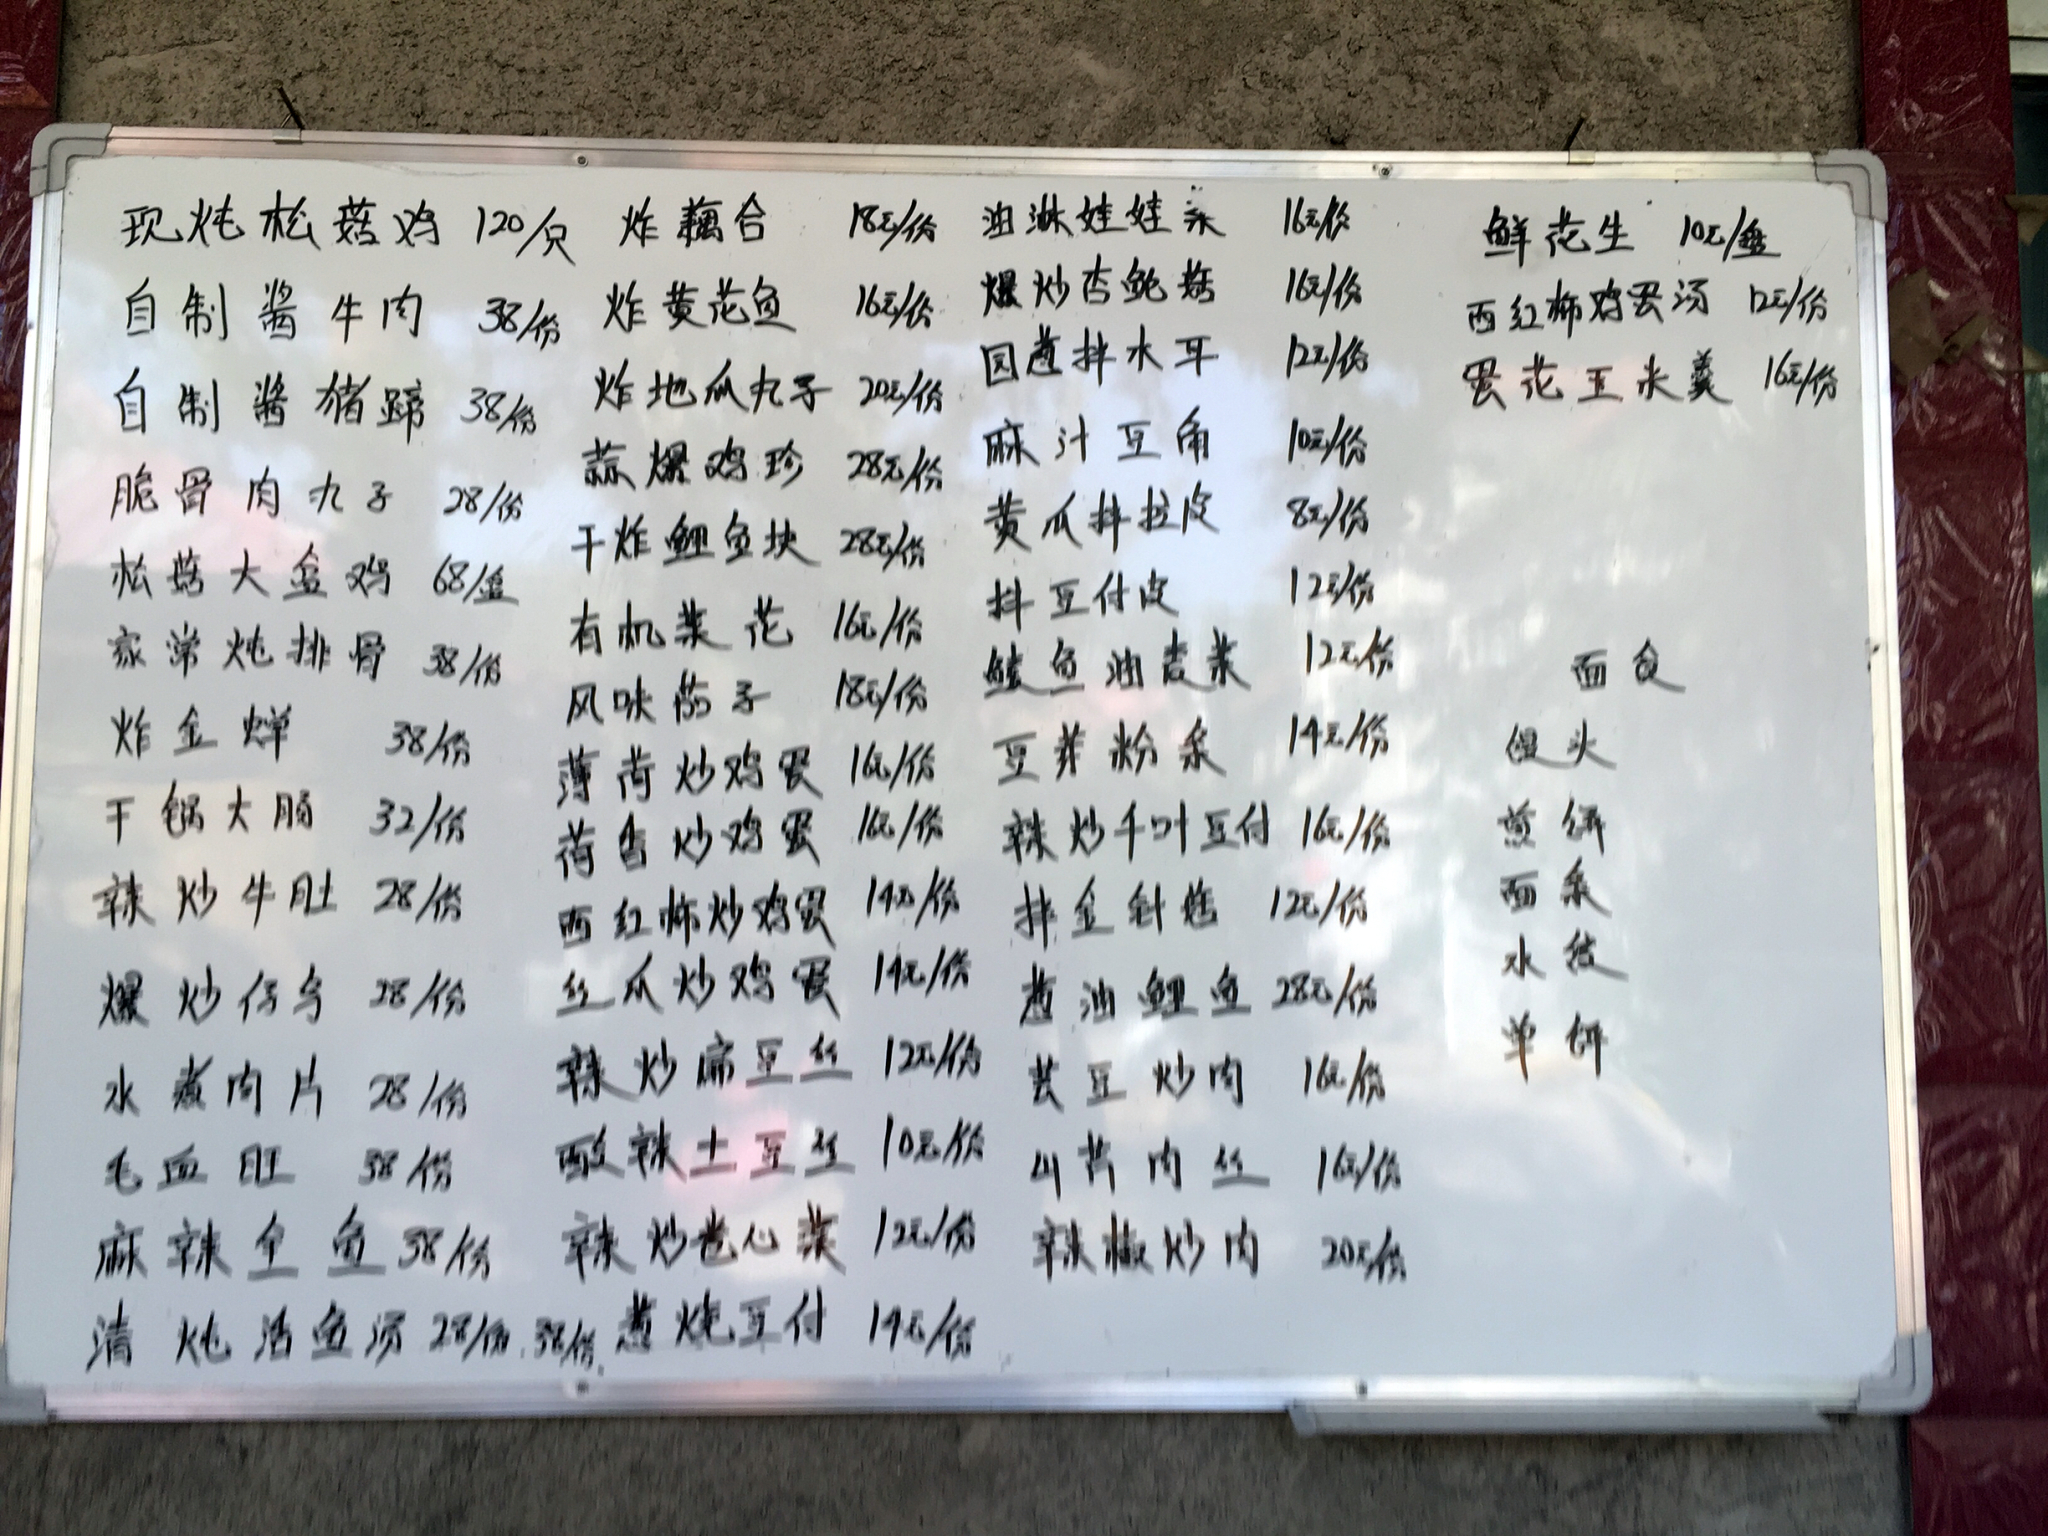 现炖松菇鸡 120/只
自制酱牛肉 38/份
自制酱猪蹄 38/份
脆骨肉丸子 28/份
松菇大盆鸡 68/盆
家常炖排骨 38/份
炸金蝉 38/份
干锅大肠 32/份
辣炒牛肚 28/份
爆炒仔乌 28/份
水煮肉片 28/份
毛血旺 38/份
麻辣全鱼 38/份
清炖活鱼汤 28/份 38/份
炸藕合 18元/份
炸黄花鱼 16元/份
炸地瓜丸子 20元/份
蒜爆鸡珍 28元/份
干炸鲤鱼块 28元/份
有机菜花 16元/份
风味茄子 18元/份
薄荷炒鸡蛋 16元/份
荷香炒鸡蛋 16元/份
西红柿炒鸡蛋 14元/份
丝瓜炒鸡蛋 14元/份
辣炒扁豆丝 12元/份
酸辣土豆丝 10元/份
辣炒卷心菜 12元/份
葱烧豆付 14元/份
油淋娃娃菜 16元/份
爆炒杏鲍菇 16元/份
园葱拌木耳 12元/份
麻汁豆角 10元/份
黄瓜拌拉皮 8元/份
拌豆付皮 12元/份
鲮鱼油麦菜 12元/份
豆芽粉条 14元/份
辣炒千叶豆付 16元/份
拌金针菇 12元/份
葱油鲤鱼 28元/份
芸豆炒肉 16元/份
山芹肉丝 16元/份
辣椒炒肉 20元/份
鲜花生 10元/盘
西红柿鸡蛋汤 12元/份
蛋花玉米羹 16元/份
面食
馒头
煎饼
面条
水饺
单饼